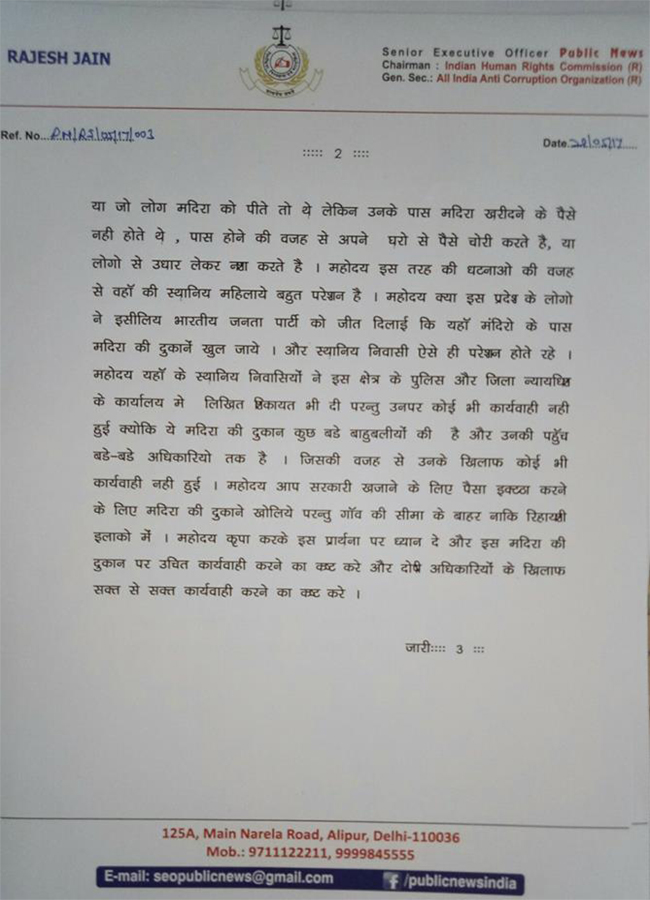 RAJESH JAIN
Senior Executive Officer Public News
Chairman : Indian Human Rights Commission (R)
Gen. Sec.: All India Anti Corruption Organization (R)
Ref. No... P.N/RJ/05/17/003
Date 28/05/17
::::: 2 ::::
या जो लोग मदिरा को पीते तो थे लेकिन उनके पास मदिरा खरीदने के पैसे
नही होते थे , पास होने की वजह से अपने घरो से पैसे चोरी करते है, या
लोगो से उधार लेकर नशा करते है । महोदय इस तरह की घटनाओ की वजह
से वहाँ की स्थानिय महिलाये बहुत परेशन है । महोदय क्या इस प्रदेश के लोगो
ने इसीलिय भारतीय जनता पार्टी को जीत दिलाई कि यहाँ मंदिरो के पास
मदिरा की दुकानें खुल जाये । और स्थानिय निवासी ऐसे ही परेशन होते रहे ।
महोदय यहाँ के स्थानिय निवासियों ने इस क्षेत्र के पुलिस और जिला
के कार्यालय मे लिखित शिकायत भी दी परन्तु उनपर कोई भी कार्यवाही नही
हुई क्योकि ये मदिरा की दुकान कुछ बडे बाहुबलीयों की है और उनकी पहुँच
बडे-बडे अधिकारियो तक है । जिसकी वजह से उनके खिलाफ कोई भी
कार्यवाही नही हुई । महोदय आप सरकारी खजाने के लिए पैसा इक्टठा करने
के लिए मदिरा की दुकाने खोलिये परन्तु गाँव की सीमा के बाहर नाकि रिहायशी
इलाको में । महोदय कृपा करके इस प्रार्थना पर ध्यान दे और इस मदिरा की
दुकान पर उचित कार्यवाही करने का कष्ट करे और दोषी अधिकारियों के खिलाफ
सक्त से सक्त कार्यवाही करने का कष्ट करे ।
जारी:::: 3 :::
125A, Main Narela Road, Alipur, Delhi-110036
Mob.: 9711122211, 9999845555
E-mail: seopublicnews@gmail.com
/publicnewsindia